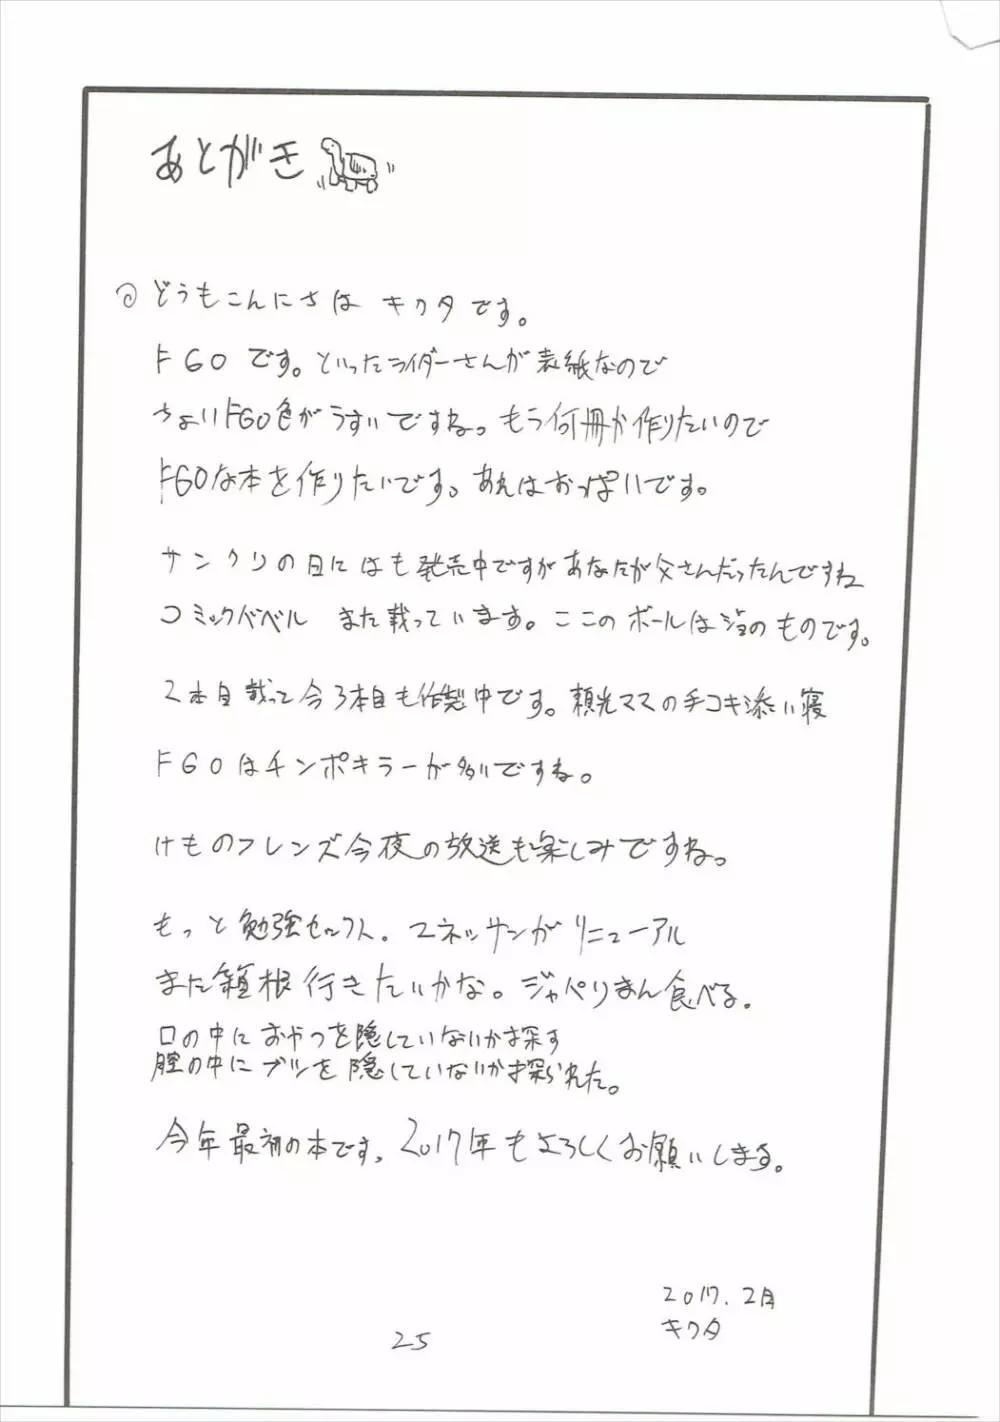 あとがき
どうもこんにちは キクタです。
FGOです。といったライダーさんが表紙なので
ちょいFGO色がうすいですね。もう何冊か作りたいので
FGOな本を作りたいです。あれはおっぱいです。
サンクリの日にはも発売中ですがあなたが父さんだったんですね
コミックバベル また載っています。ここのボールはジョのものです。
2本目載って今3本目も作製中です。頼光ママの手コキ添い寝
FGOはチンポキラーが多いですね。
けものフレンズ今夜の放送も楽しみですね。
もっと勉強せねば。ユネッサンがリニューアル
また箱根行きたいかな。ジャパリまん食べる。
口の中におやつを隠していないか探す
膣の中にブツを隠していないか探られた。
今年最初の本です。2017年もよろしくお願いします。
2017.2月
キクタ
25